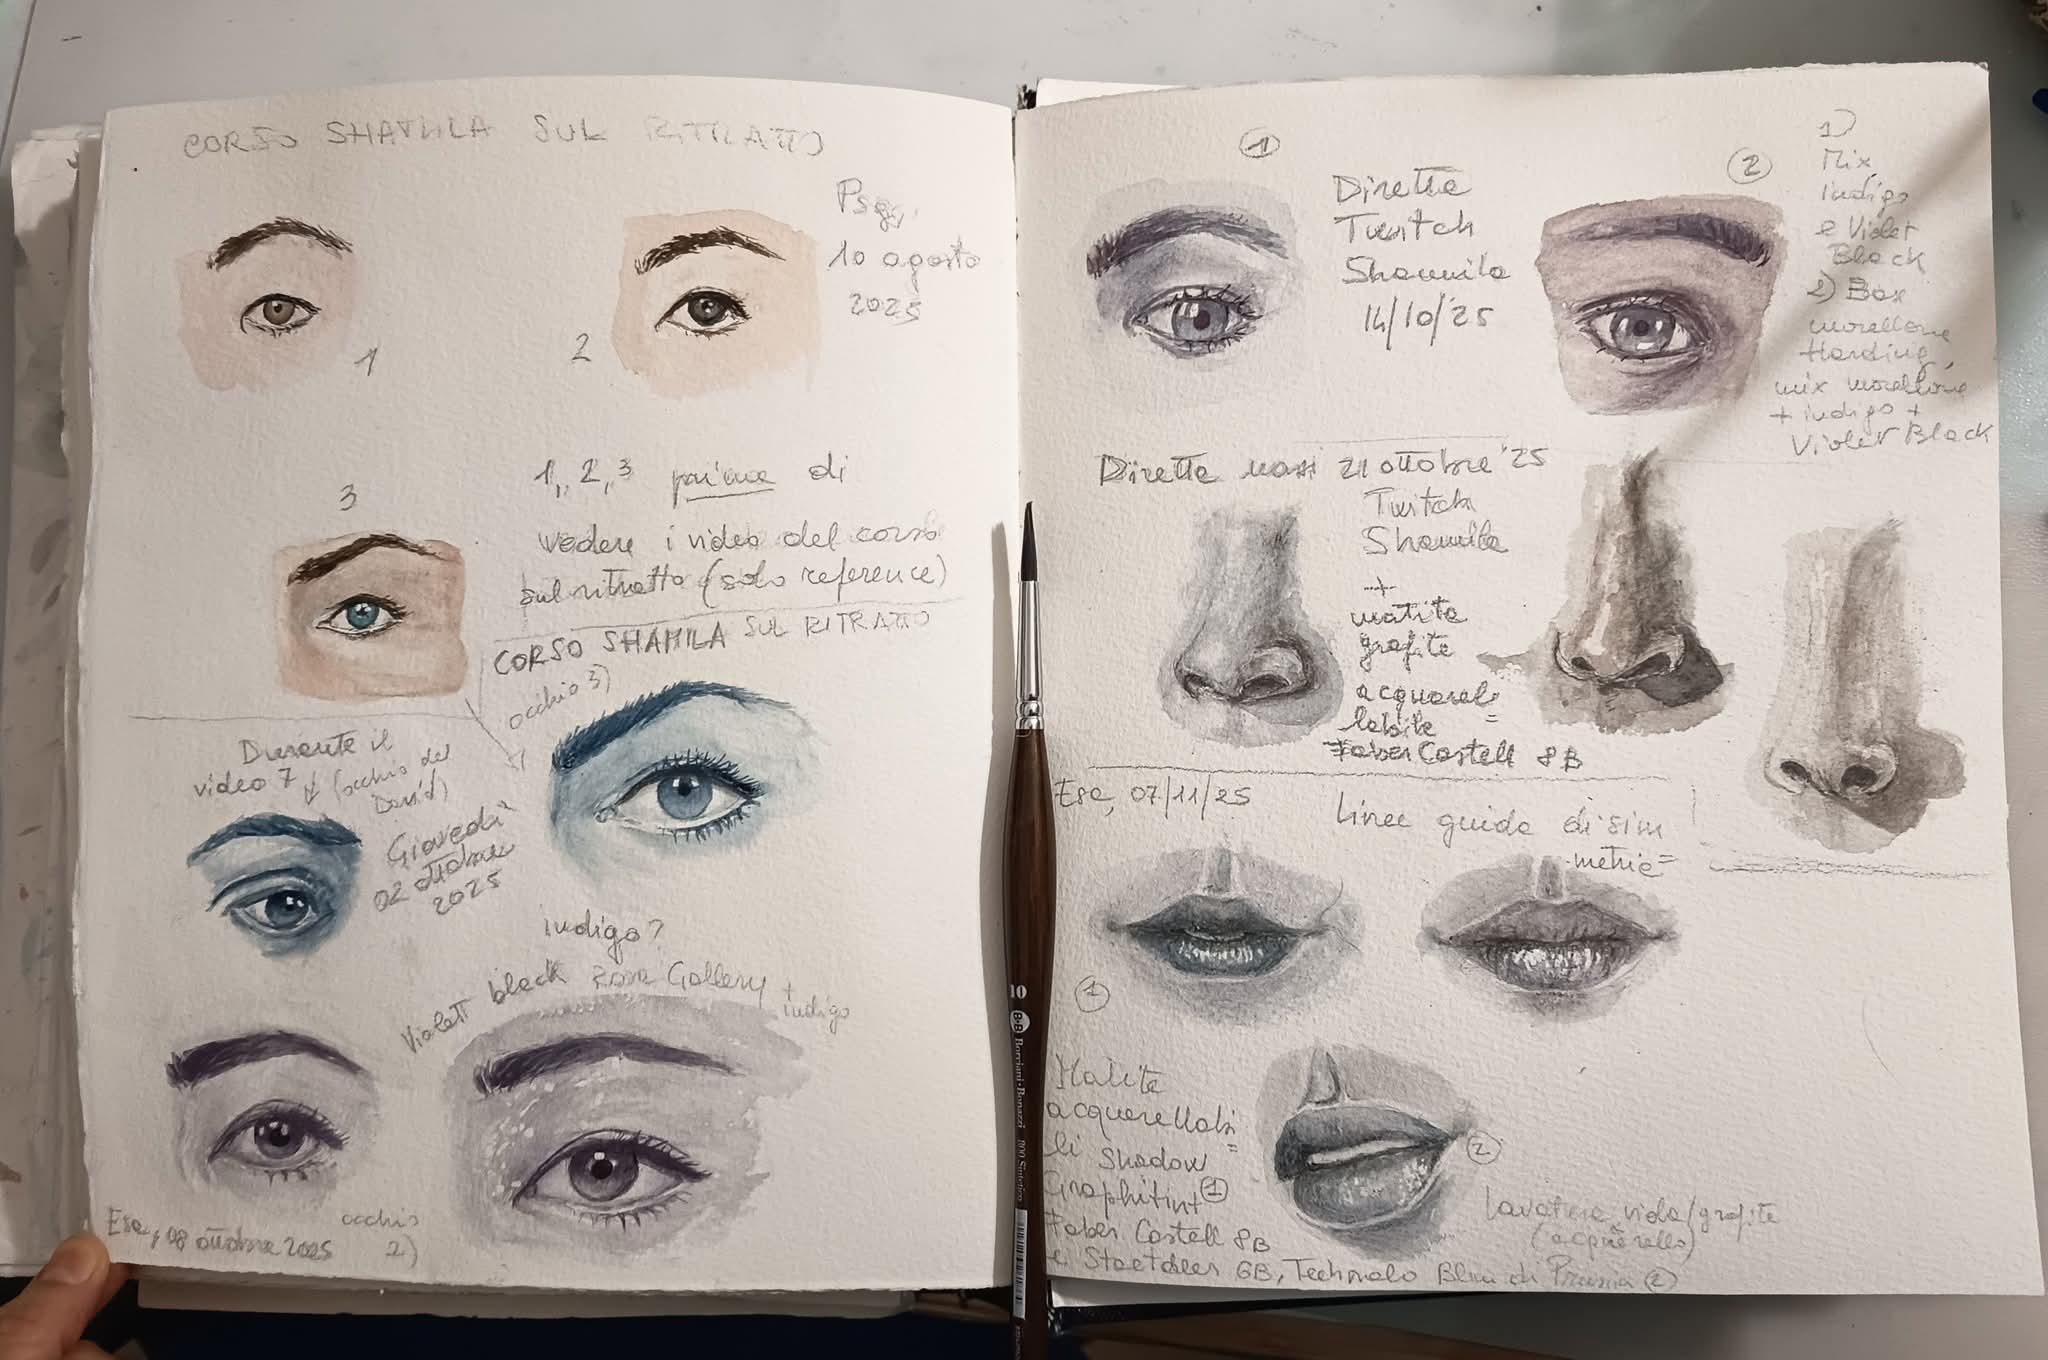 CORSO SHAMILA SUL RITRATTO
10 agosto
2025
1
2
3
1,, 2, 3 prima di
vedere i video del corso
sul ritratto (solo reference)
CORSO SHAMILA SUL RITRATTO
occhio 3)
Durante il
video 7 (occhio del
David)
Giovedì
02 ottobre
2025
indigo?
Violett black Rosa Gallery +
indigo
Ese, 08 ottobre 2025
occhio
2)
1
Diretta
Twitch
Shamila
14/10/'25
2
1)
Mix
indigo
e Violet
Black
2) Box
morellone
Harding,
mix morellone
+ indigo +
Violet Black
Diretta nasi 21 ottobre '25
Twitch
Shamila
+
matita
grafite
acquarel=
labile
Faber Castell 8B
Ese, 07/11/25
Linee guida di sim
metria=
1
Matite
acquerellabi=
li Shadow
Graphitint 1
Faber Castell 8B
e Staedtler 6B, Technalo Blu di Prussia 2
2
grafite
(acquerello)
10
B×B Borciani e Bonazzi 100 Sintetico